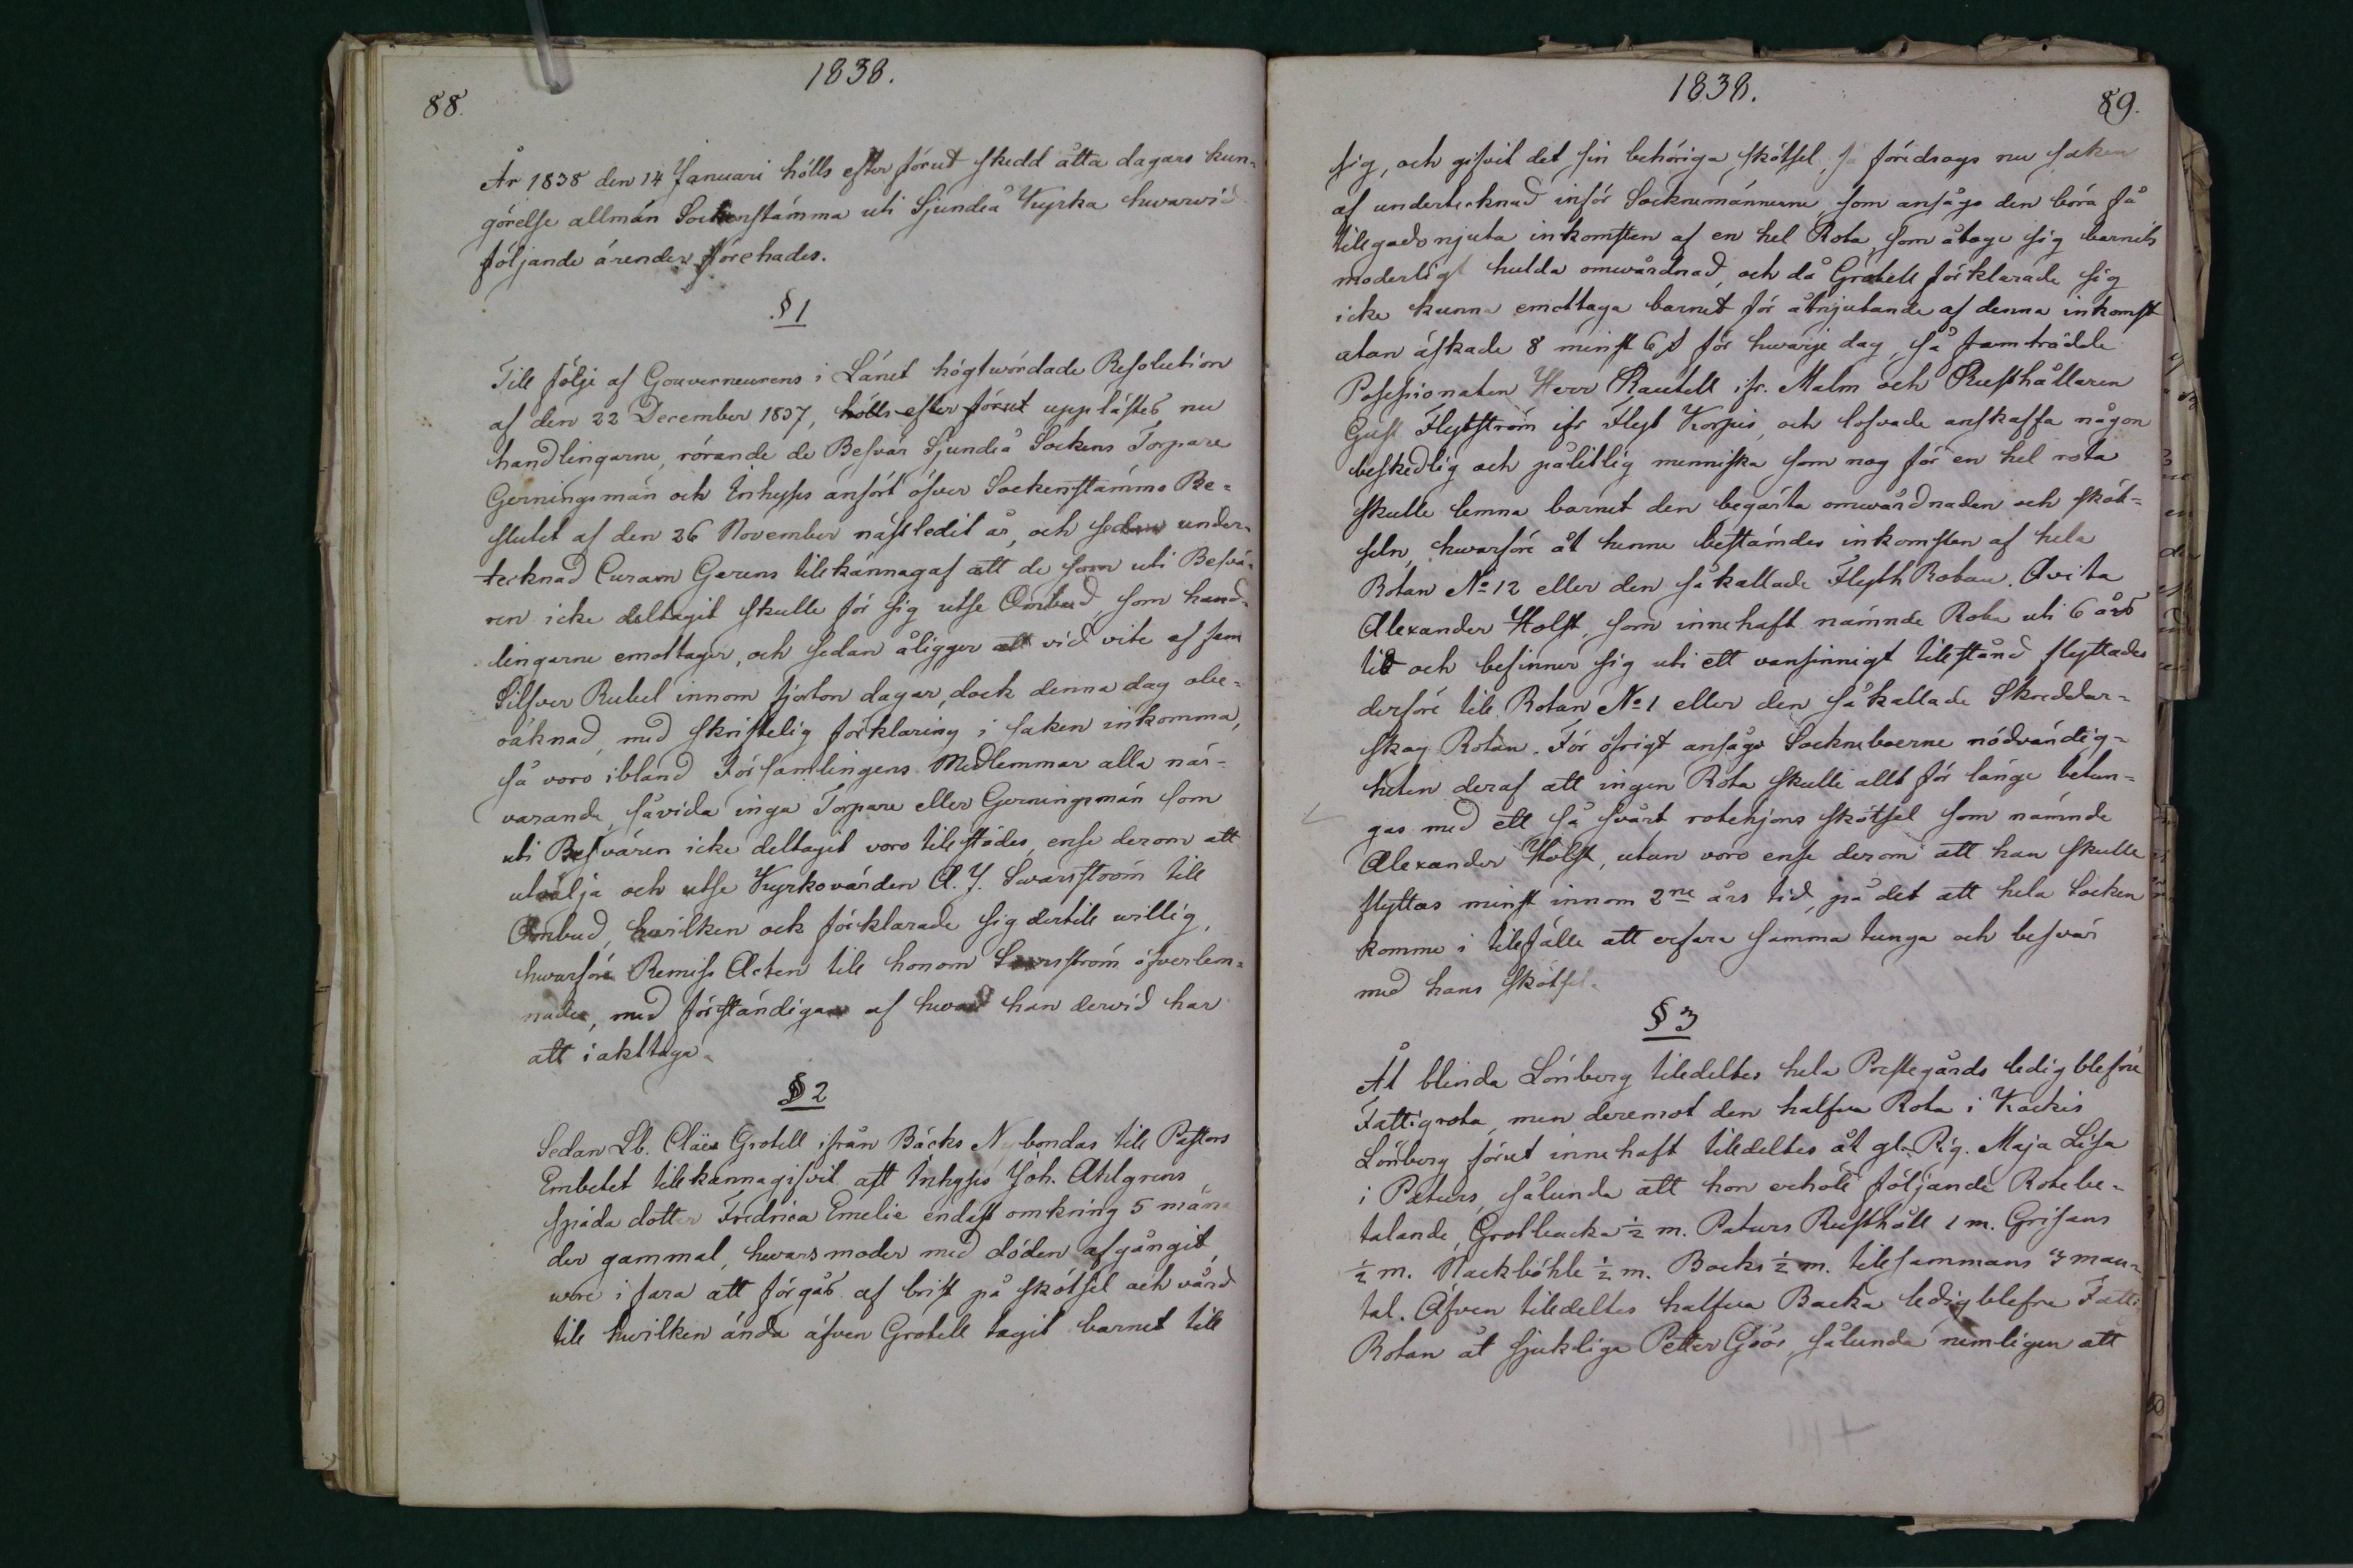 1838.
88.
År 1838 den 14 Januari hölls efter förut skedd åtta dagars kun-
görelse allmän Sockenstämma uti Sjundeå Kyrka hwarwid
följande ärender förehades.
§ 1
Till följe af Gouverneurens i Länet högtwördade Resolution
af den 22 December 1837, hölls efter förut upplästes nu
handlingarne, rörande de Besvär Sjundeå Sockens Torpare
Gerningsmän och Inhyses anfört öfver Sockenstämmo Be-
slutet af den 26 November nästledit år, och sedan under-
tecknad Curam Gerens tillkännagaf att de som uti Besvä-
ren icke deltagit skulle för sig utse Ombud, som hand-
lingarne emottager, och sedan åligger att vid vite af fem
Silfver Rubel innom fjorton dagar, dock denna dag obe-
räknad, med skriftelig förklaring i saken inkomma,
så voro ibland Församlingens Medlemmar alla när-
varande, såvida inga Torpare eller Gerningsmän som
uti Besvären icke deltagit voro tillstädes, ense derom att
utvälja och utse Kyrkovärden A. J. Swarfström till
Ombud, hwilken ock förklarade sig dertill willig,
hwarföre Remiss Acten till honom öfverlem-
nades, med förständigan af hwad han dervid har
att iakttaga.
§ 2
Sedan Lb. Claës Grotell ifrån Bäcks Nybondas till Pastors
Embetet tillkännagifvit, att Inhyses Joh. Ahlgrens
späda dotter Fredrica Emelie endast omkring 5 måna
der gammal, hwars moder med döden afgångit,
wore i fara att förgås af brist på skötsel och vård
till hwilken ända äfven Grotell tagit barnet till
1838.
89.
sig, och gifvit det sin behöriga skötsel, så föredrogs nu saken
af undertecknad inför Socknemännerne, som ansågo den böra få
tillgodonjuta inkomsten af en hel Rota, som åtoge sig barnets
moderligt hulda omvårdnad, och då Grotell förklarade sig
icke kunna emottaga barnet för åtnjutande af denna inkomst
utan äskade 8 minst 6 s för hwarje dag, så framträdde
Possessionaten Herr Rautell ifr. Malm och Rusthållaren
Gust. Flytström ifr Flyt Korpis, och lofvade anskaffa någon
beskedlig och pålitlig menniska som nog för en hel rota
skulle lemna barnet den begärta omvårdnaden och sköt-
seln, hwarföre åt henne bestämdes inkomsten af hela
Rotan No 12 eller den så kallade Flyth Rotan. Avita
Alexander Holst, som innehaft nämnde Rota uti 6 års
tid och befinner sig uti ett vansinnigt tillstånd flyttades
derföre till Rotan No 1 eller den så kallade Skreddar-
skog Rotan. För öfrigt ansågo Sockneboerne nödvändig-
heten deraf att ingen Rota skulle allt för länge betun-
gas med ett så svårt rotehjons skötsel som nämnde
Alexander Holst, utan voro ense derom att han skulle
flyttas minst innom 2ne års tid, på det att hela Socken
komme i tillfälle att erfara samma tunga och besvär
med hans skötsel.
§ 3
Åt blinda Lönberg tilldeltes hela Prestegårds ledigblefne
Fattigrota, men deremot den halfva Rota i Kockis
Lönberg förut innehaft tilldeltes åt gl. Pig. Maja Lisa
i Paturs, sålunda att hon erhöll följande Rotebe-
talande, Grotbacka ½ m. Paturs Rusthåll 1 m. Grisans
½ m. Nackböhle ½ m. Bocks ½ m. tillsammans 3 man-
tal. Äfven tilldeltes halfva Backa ledigblefne Fatti
Rotan åt sjukliga Petter Gröö, sålunda nemligen att